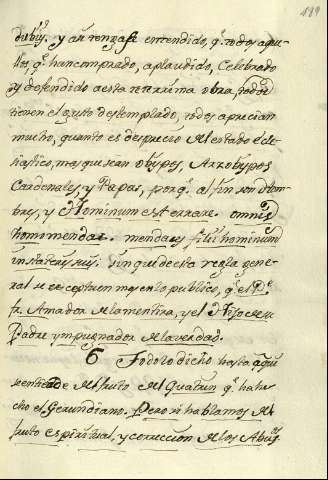 119
dubijs. y assi tengase entendido, q.e todos aque-
llos, q.e han comprado, aplaudido, Celebrado
y defendido a esta obra, todos
tienen el gusto destemplado, todos aprecian
mucho, quanto es desprecio del estado ecle-
siastico, mas que sean obispos, Arzobispos
Cardenales, y Papas, porq.e al fin son hom-
bres, y Hominum est errare. omnis
homo mendax. mendaces filij hominum
in stateris suis. sin que de esta regla gene-
ral se exceptuen en lo publico, q.e el P.e
fr. Amador de la mentira, y el Hijo de su
Padre ympugnador de la verdad.
6 Todo lo dicho hasta aqui
se entiende del fruto del q.e ha he-
cho el Gerundiano. Pero si hablamos del
fruto espiritual, y correccion de los Abus.os